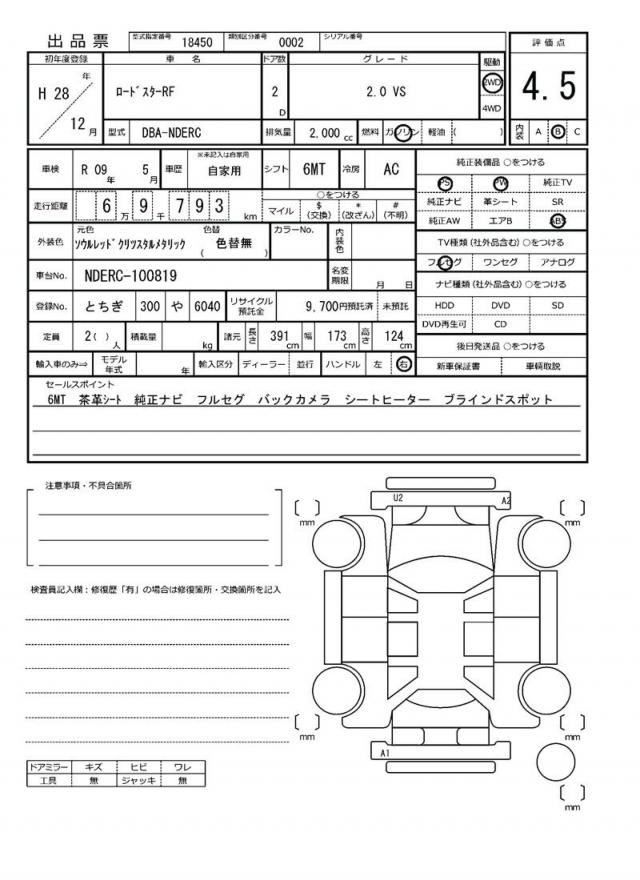 出品票 型式指定番号 18450 類別区分番号 0002 シリアル番号
評価点
初年度登録 車名 ドア数 グレード 駆動
H 28 年 12 月 ﾛｰﾄﾞｽﾀｰRF 2 D 2.0 VS 2WD 4WD
4.5
型式 DBA-NDERC 排気量 2,000 cc 燃料 ガソリン 軽油 ( ) 内装 A B C
車検 R 09 年 5 月 車歴 ※未記入は自家用 自家用 シフト 6MT 冷房 AC
純正装備品 ○をつける
PS PW 純正TV
走行距離 6 万 9 千 7 9 3 km ○をつける
マイル $ (交換) * (改ざん) # (不明)
純正ナビ 革シート SR
純正AW エアB ABS
外装色 元色 ｿｳﾙﾚｯﾄﾞｸﾘｽﾀﾙﾒﾀﾘｯｸ 色替 ( 色替無 ) カラーNo. 内装色
TV種類 (社外品含む) ○をつける
フルセグ ワンセグ アナログ
車台No. NDERC-100819 名変期限 月 日
ナビ種類 (社外品含む) ○をつける
登録No. とちぎ 300 や 6040 リサイクル預託金 9,700円預託済 未預託
HDD DVD SD
DVD再生可 CD
定員 2 ( ) 人 積載量 kg 諸元 長さ 391 cm 幅 173 cm 高さ 124 cm
後日発送品 ○をつける
輸入車のみ⇨ モデル年式 年 輸入区分 ディーラー 並行 ハンドル 左 右
新車保証書 車輌取説
セールスポイント
6MT 茶革ｼｰﾄ 純正ナビ フルセグ バックカメラ シートヒーター ブラインドスポット
注意事項・不具合箇所
U2 A2
mm mm
検査員記入欄：修復歴「有」の場合は修復箇所・交換箇所を記入
mm mm
A1
ドアミラー キズ ヒビ ワレ
工具 無 ジャッキ 無
mm